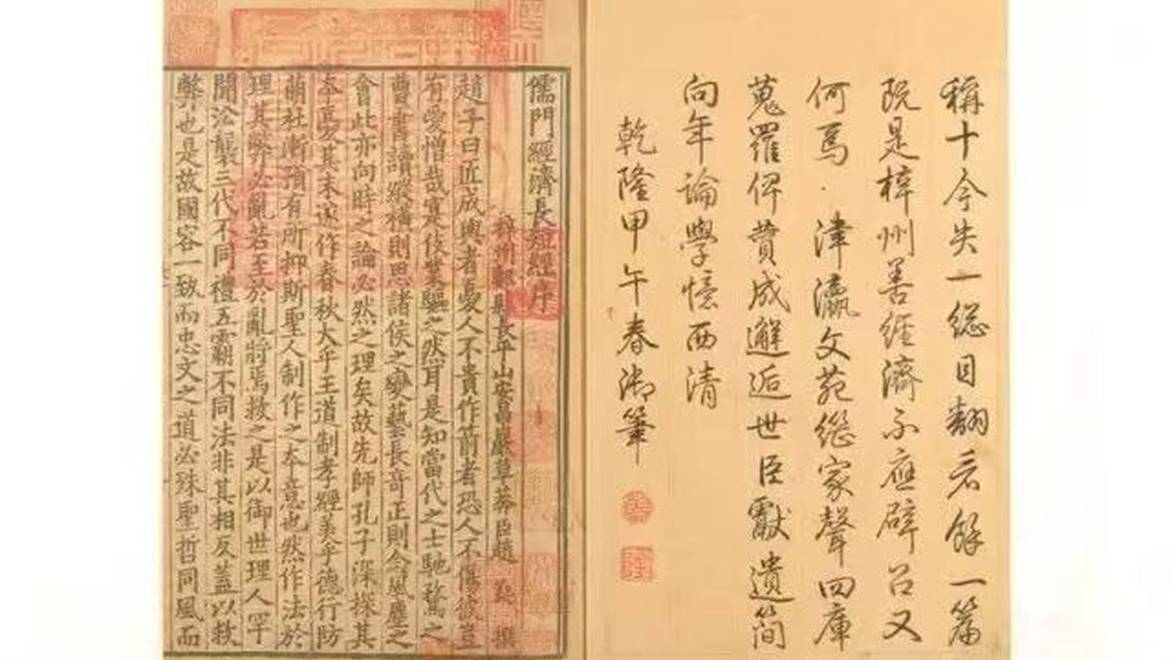 稱十今失一總目翻看餘一篇
既是梓州善經濟不應辟召又
何爲津瀛文苑繼家聲四庫
蒐羅俾賛成邂逅世臣獻遺簡
向年論學憶西清
乾隆甲午春御筆
儒門經濟長短經序
梓州郪縣長平山安昌巖草莽臣趙 蕤 撰
趙子曰匠成輿者憂人不貴作箭者恐人不傷彼豈
有愛憎哉寔伎業驅之然耳是知當代之士馳騖之
曹書讀縱橫則思諸侯之變藝長奇正則念風塵之
會此亦向時之論必然之理矣故先師孔子深探其
本憂其末遂作春秋大乎王道制孝經美乎德行防
萌杜漸預有所抑斯聖人制作之本意也然作法於
理其弊必亂若至於亂將焉救之是以御世理人罕
聞沿襲三代不同禮五霸不同法非其相反蓋以救
弊也是故國容一致而忠文之道必殊聖哲同風而